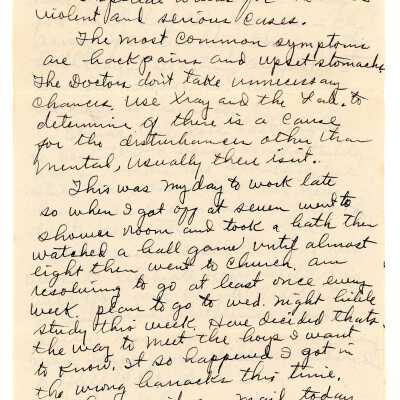 violent and serious cases.
The most common symptoms
are back pains and upset stomachs.
The Doctors don't take unnecessary
chances, use Xray and the Lab. to
determine if there is a cause
for the disturbances other than
mental, usually there isn't.
This was my day to work late
so when I got off at seven went to
shower room and took a bath then
watched a ball game until almost
eight then went to church. am
resolving to go at least once every
week. plan to go to wed. night bible
study this week. Have decided thats
the way to meet the boys I want
to know. It so happened I got in
the wrong barracks this time.
mail today